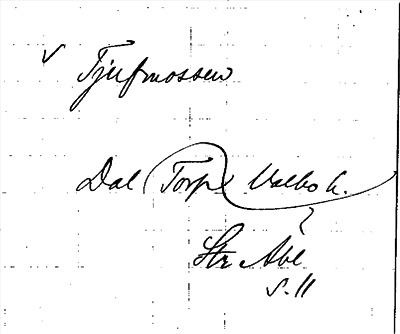 ✓ Tjufmossen
Dal Torp Valbo h.
Str Åbe
s. 11